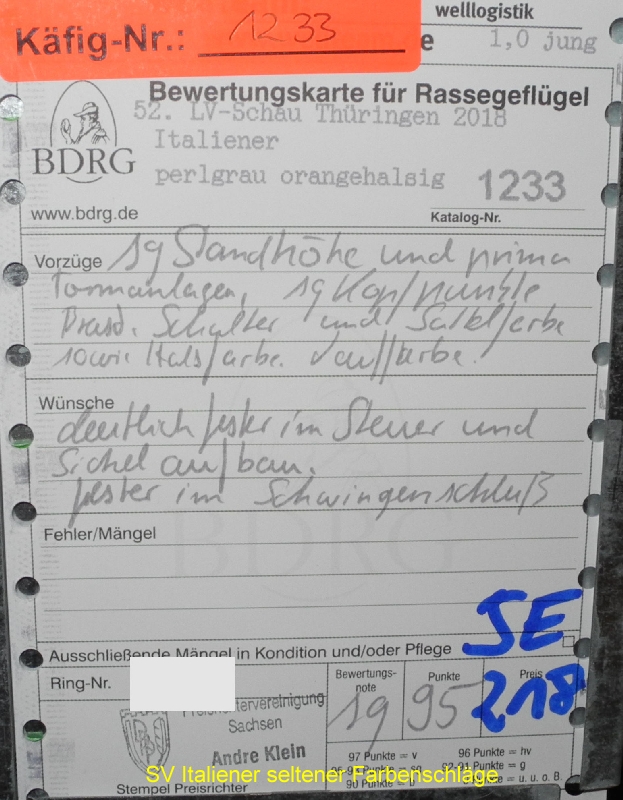 welllogistik
Käfig-Nr.: 1233
e 1,0 jung
Bewertungskarte für Rassegeflügel
52. LV-Schau Thüringen 2018
Italiener
BDRG
perlgrau orangehalsig 1233
www.bdrg.de
Katalog-Nr.
Vorzüge sg Standhöhe und prima
Formanlagen, sg Kopfpunkte
Brust, Schulter und Sattelfarbe
sowie Halsfarbe. Lauffarbe.
Wünsche
deutlich fester im Steuer und
Sichelaufbau.
fester im Schwingenschluß
Fehler/Mängel
BDRG
SE
Ausschließende Mängel in Kondition und/oder Pflege
Ring-Nr.
Bewertungs-
note
Punkte
Preis
sg 95 218
Sachsen
Andre Klein
97 Punkte = v 96 Punkte = hv
= g
= u. u. o. B.
SV Italiener seltener Farbenschläge
Stempel Preisrichter